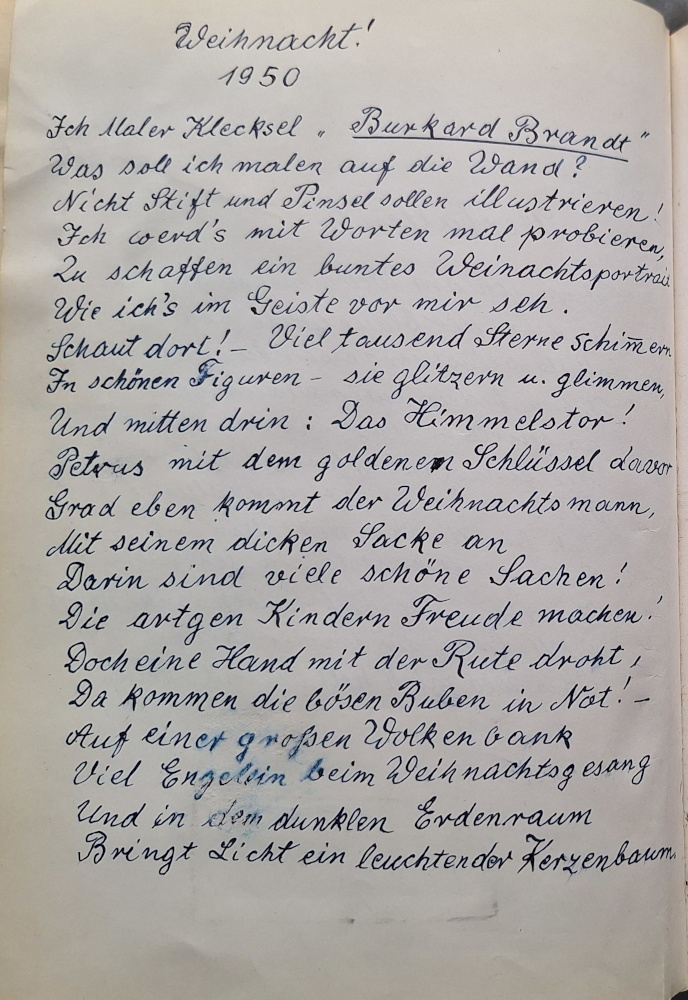 Weihnacht!
1950
Ich Maler Klecksel „Burkard Brandt"
Was soll ich malen auf die Wand?
Nicht Stift und Pinsel sollen illustrieren!
Ich werd's mit Worten mal probieren,
Zu schaffen ein buntes Weinachtsportrait
Wie ich's im Geiste vor mir seh.
Schaut dort! – Viel tausend Sterne schim̅ern
In schönen Figuren – sie glitzern u. glimmen,
Und mitten drin: Das Himmelstor!
Petrus mit dem goldenem Schlüssel davor
Grad eben kommt der Weihnachtsmann,
Mit seinem dicken Sacke an
Darin sind viele schöne Sachen!
Die artgen Kindern Freude machen!
Doch eine Hand mit der Rute droht,
Da kommen die bösen Buben in Not! –
Auf einer großen Wolkenbank
Viel Engelein beim Weihnachtsgesang
Und in dem dunklen Erdenraum
Bringt Licht ein leuchtender Kerzenbaum.